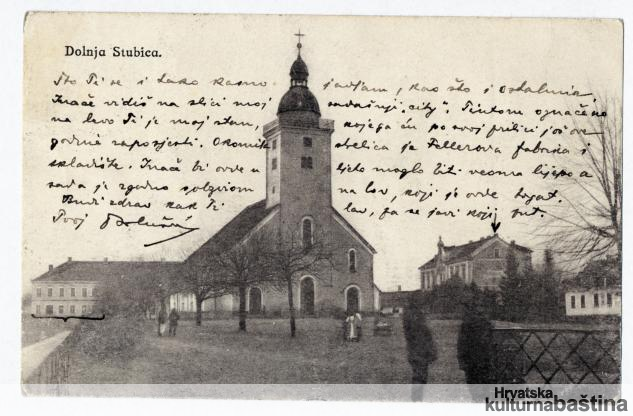 Dolnja Stubica.
Što Ti se i tako kasno javljam, kao što i ostalima,
Inače vidiš na slici moj sadašnji "city". Tintom označeno
na levo Ti je moj stan, kojega ću po svoj prilici još ove
godine zaposjesti. Okomita strelica je Fellerova fabrika i
skladište. Inače bi ovde u ljeto moglo biti veoma lijepo a
sada je zgodno za lov, koji je ovde bogat.
Budi zdrav kak Ti lav, pa se javi koji put.
Tvoj
Hrvatska
kulturnabaština